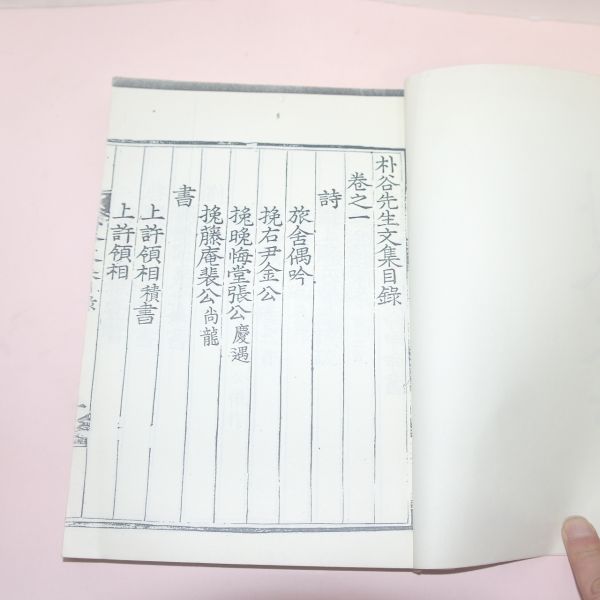 朴谷先生文集目錄
卷之一
詩
旅舍偶吟
挽右尹金公
挽晚悔堂張公慶遇
挽藤庵裴公尙龍
書
上許領相積書
上許領相